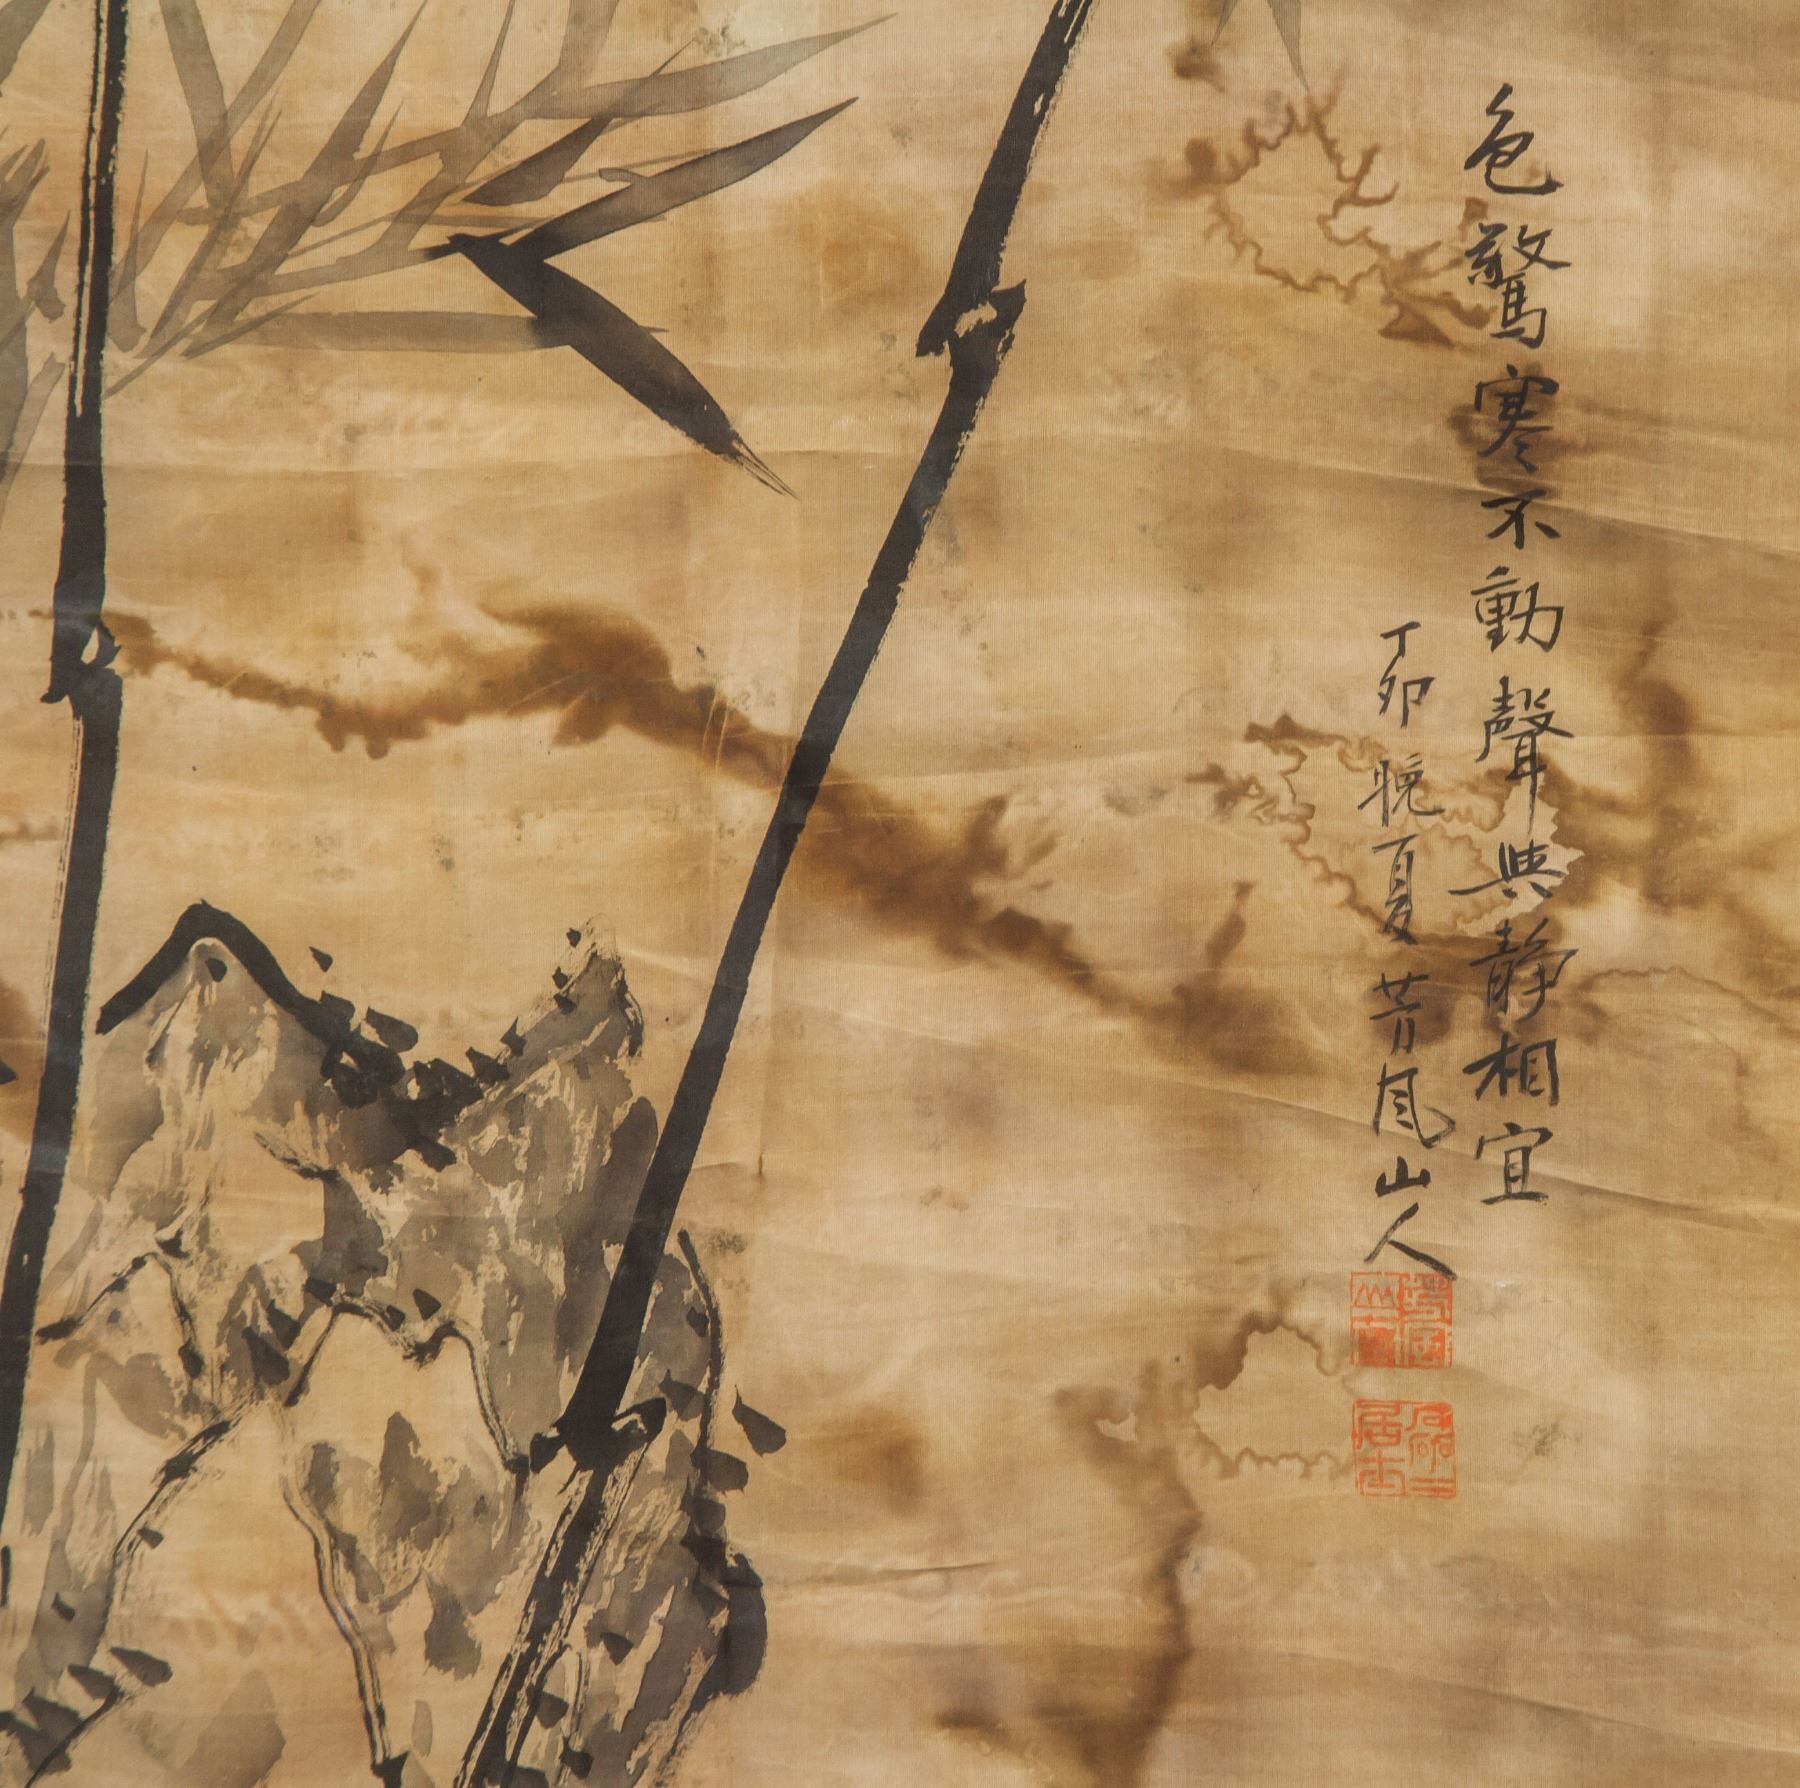 色驚寒不動聲與靜相宜
丁卯晚夏芳風山人
居士